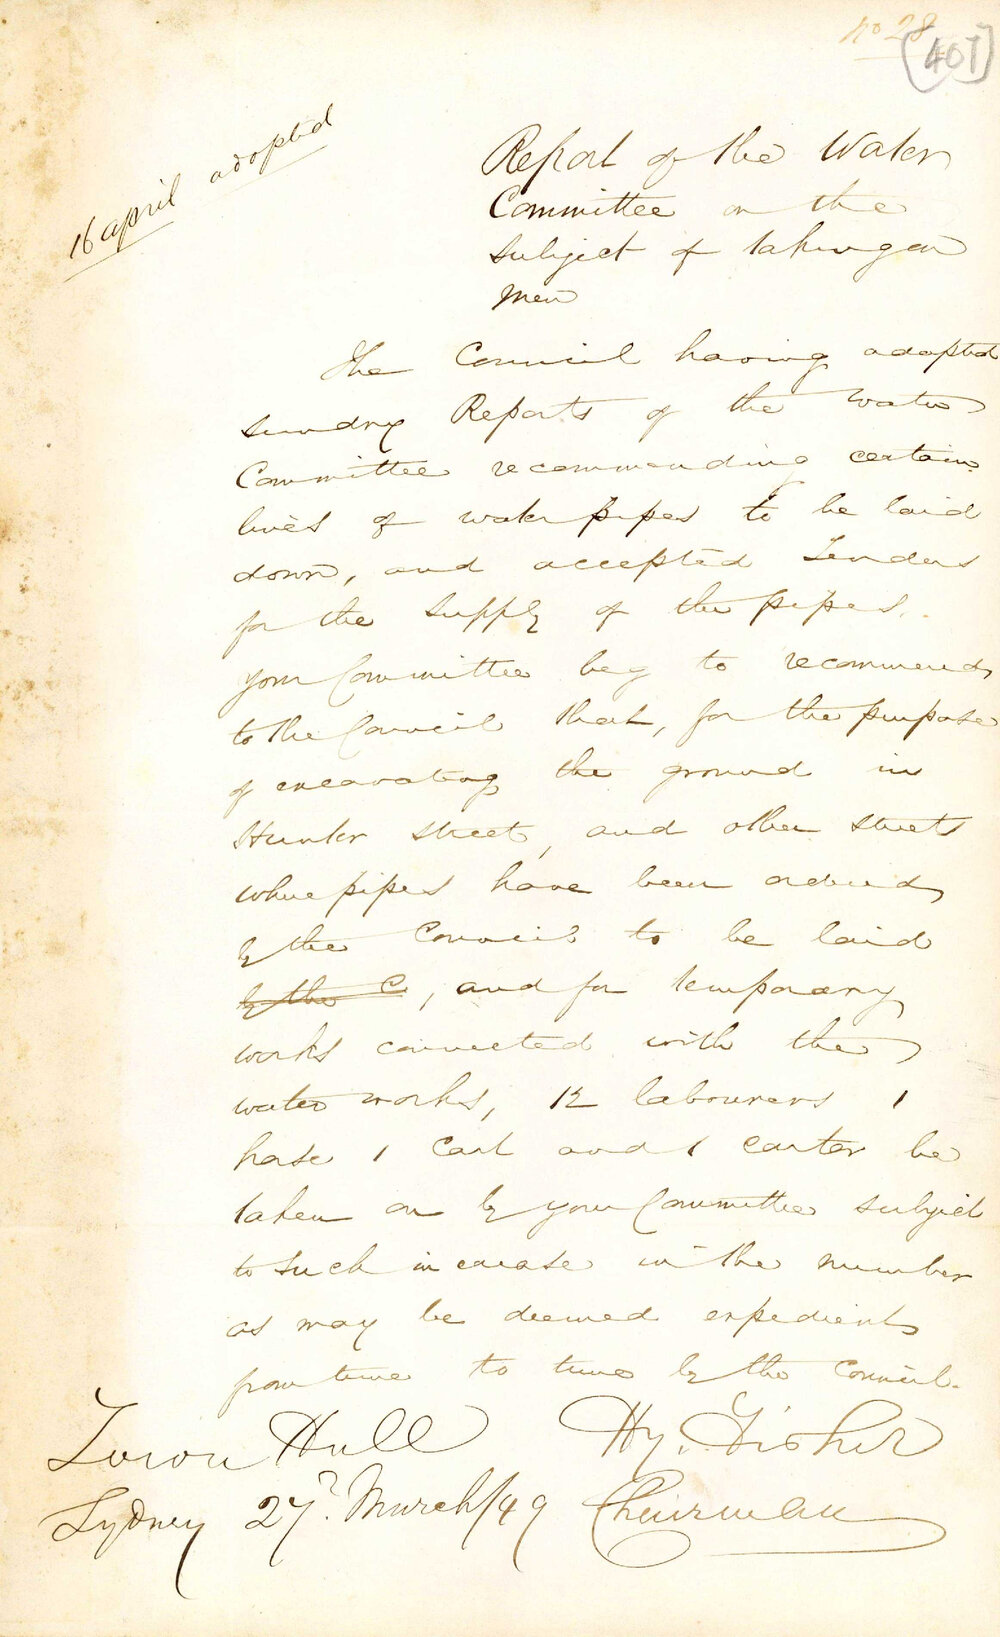 no 28
(401)
16 april adopted
Report of the Water
Committee on the
subject of taking on
men
The Council having adopted
sundry Reports of the Water
Committee recommending certain
lines of water pipes to be laid
down, and accepted Tenders
for the supply of the pipes.
your Committee beg to recommend
to the Council that, for the purpose
of excavating the ground in
Hunter Street, and other Streets
where pipes have been ordered
by the Council to be laid
by the C, and for temporary
works connected with the
water works, 12 labourers 1
horse 1 Cart and 1 carter be
taken on by your Committee subject
to such increase in the number
as may be deemed expedient
from time to time by the Council.
Town Hall Hy. Fisher
Sydney 27 March/49 Chairman